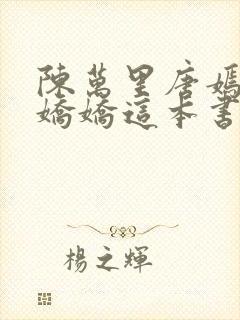 陳萬里唐嫣
嬌嬌這本書
楊之輝